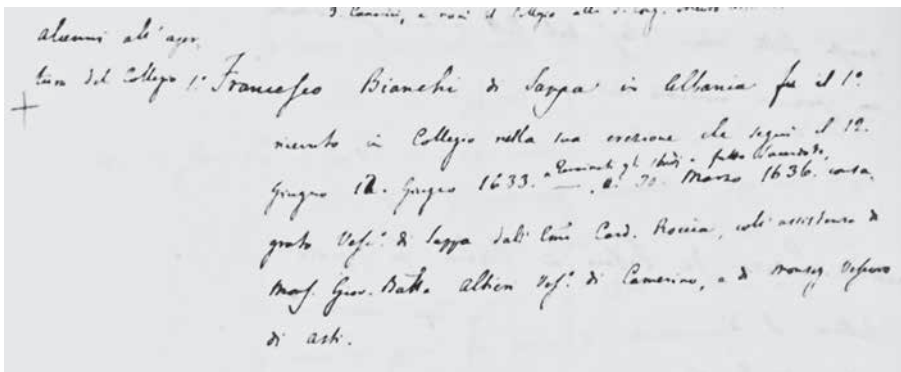 alunni all' aper,
tura del Collegio 1.° Francesco Bianchi di Sappa in Albania fu il 1.°
ricevuto in Collegio nella sua erezione che seguì il 12.
Giugno 12. Giugno 1633. e terminati gli studj e fatto Sacerdote,
a. 30. Marzo 1636. consa,
grato Vesc.° di Sappa dall' Card. Roccia, coll' assistenza di
Mons. Giov. Batta Altieri Vesc.° di Camerino, e di Monsig. Vescovo
di Asti.